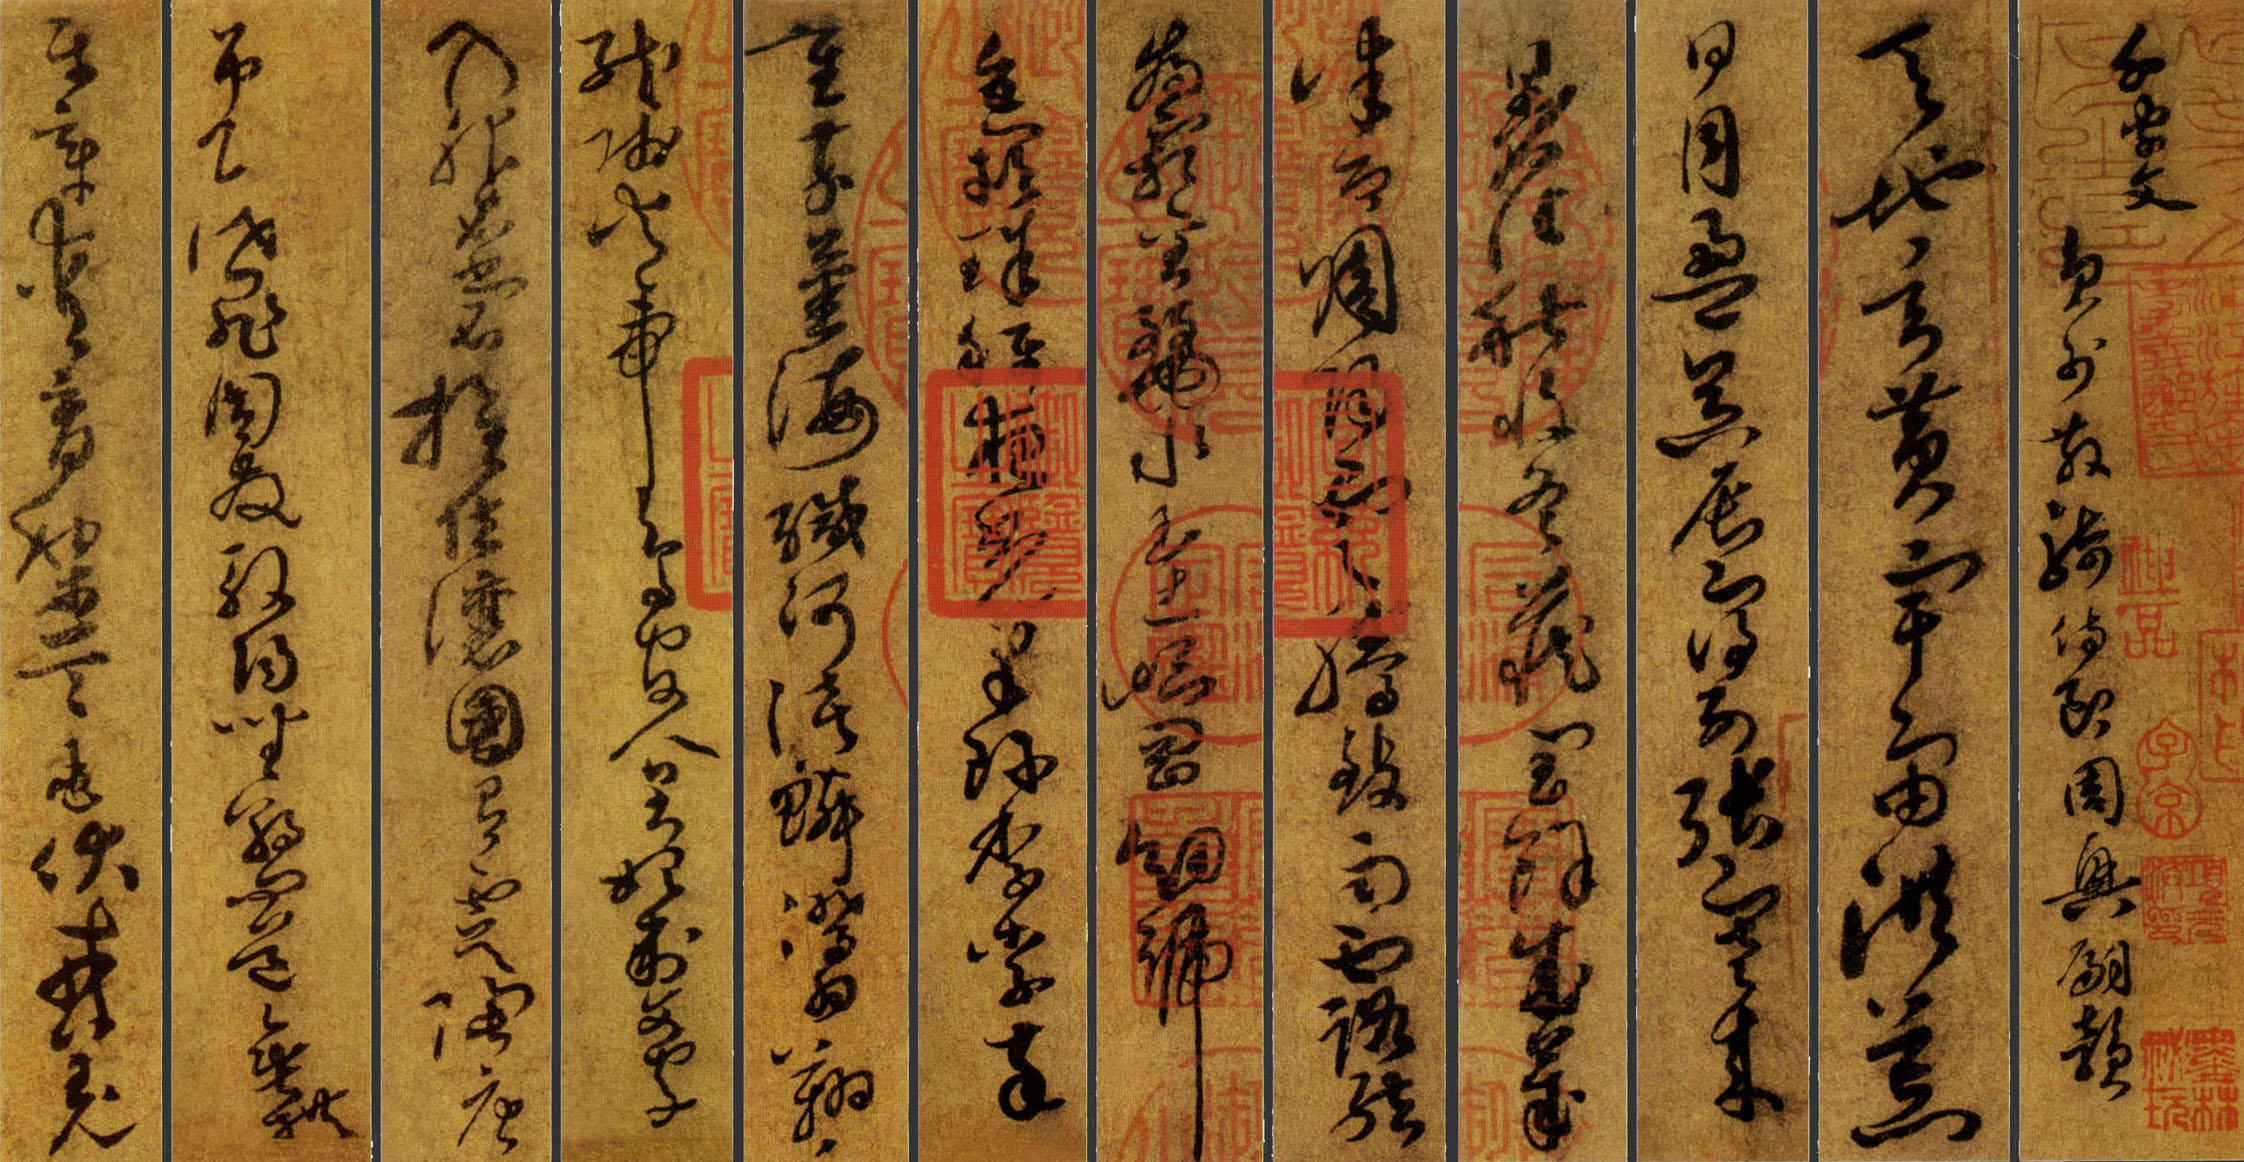 千字文 員外散騎侍郎周興嗣韻
天地玄黃宇宙洪荒
日月盈昃辰宿列張寒來
暑往秋收冬藏閏餘成歲
律召調陽雲騰致雨露結
為霜金生麗水玉出崐岡劒號
巨闕珠稱夜光果珍李柰菜
重芥薑海鹹河淡鱗潛羽翔
龍師火帝鳥官人皇始制文字
乃服衣裳推位讓國有虞陶唐
弔民伐罪周發殷湯坐朝問道垂拱
平章愛育黎首臣伏戎羌